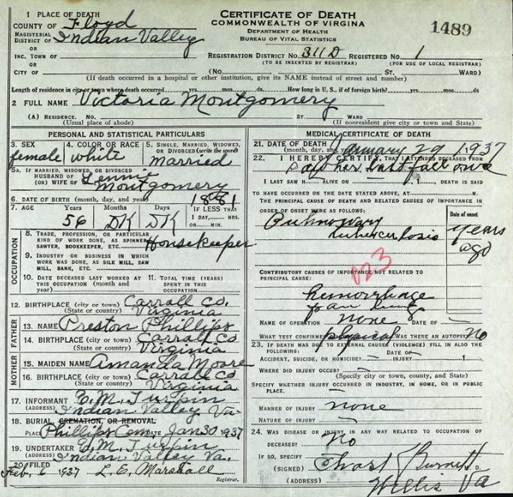 1 PLACE OF DEATH
COUNTY OF Floyd
MAGISTERIAL DISTRICT OF Indian Valley
OR
INC. TOWN OF
OR
CITY OF
CERTIFICATE OF DEATH
COMMONWEALTH OF VIRGINIA
DEPARTMENT OF HEALTH
BUREAU OF VITAL STATISTICS
1489
REGISTRATION DISTRICT NO. 311D REGISTERED NO. 1
(TO BE INSERTED BY REGISTRAR) (FOR USE OF LOCAL REGISTRAR)
(No. St. WARD)
(If death occurred in a hospital or other institution, give its NAME instead of street and number)
Length of residence in city or town where death occurred yrs. mos. ds. How long in U. S., if of foreign birth? yrs. mos. ds.
2 FULL NAME Victoria Montgomery
(A) RESIDENCE. No. St. WARD
(Usual place of abode) (If nonresident give city or town and State)
PERSONAL AND STATISTICAL PARTICULARS
3. SEX female
4. COLOR OR RACE white
5. SINGLE, MARRIED, WIDOWED, OR DIVORCED (write the word) married
5A. IF MARRIED, WIDOWED OR DIVORCED
HUSBAND OF
(OR) WIFE OF Montgomery
6. DATE OF BIRTH (month, day, and year) 1881
7. AGE 56 DK DK
IF LESS THAN 1 DAY
OCCUPATION
8. TRADE, PROFESSION, OR PARTICULAR KIND OF WORK DONE, AS SPINNER, SAWYER, BOOKKEEPER, ETC. Housekeeper
9. INDUSTRY OR BUSINESS IN WHICH WORK WAS DONE, AS SILK MILL, SAW MILL, BANK, ETC.
10. DATE DECEASED LAST WORKED AT THIS OCCUPATION (month and year)
11. TOTAL TIME (YEARS) SPENT IN THIS OCCUPATION
12. BIRTHPLACE (city or town) Carroll Co.
(State or country) Virginia
FATHER
13. NAME Preston Phillips
14. BIRTHPLACE (city or town) Carroll Co
(State or country) Virginia
MOTHER
15. MAIDEN NAME Amanda Moore
16. BIRTHPLACE (city or town) Carroll Co
(State or country) Virginia
17. INFORMANT C. M. Turpin
(ADDRESS) Indian Valley Va.
18. BURIAL, CREMATION, OR REMOVAL
PLACE Phillips Cem DATE Jan 30 1937
19. UNDERTAKER C. M. Turpin
(ADDRESS) Indian Valley Va.
20. FILED Feb. 1937 L. E. Marshall
Registrar.
MEDICAL CERTIFICATE OF DEATH
21. DATE OF DEATH (month, day, and year) January 29, 1937
22. I HEREBY CERTIFY, THAT I ATTENDED DECEASED FROM
I LAST SAW H ALIVE ON DEATH IS SAID
TO HAVE OCCURRED ON THE DATE STATED ABOVE, AT M.
THE PRINCIPAL CAUSE OF DEATH AND RELATED CAUSES OF IMPORTANCE IN ORDER OF ONSET WERE AS FOLLOWS:
Date of onset
Pulmonary
tuberculosis
years ago
CONTRIBUTORY CAUSES OF IMPORTANCE NOT RELATED TO PRINCIPAL CAUSE:
hemorrhage
from lung
NAME OF OPERATION none DATE OF
WHAT TEST CONFIRMED physical WAS THERE AN AUTOPSY? No
23. IF DEATH WAS DUE TO EXTERNAL CAUSES (VIOLENCE) FILL IN ALSO THE FOLLOWING:
ACCIDENT, SUICIDE, OR HOMICIDE DATE OF INJURY
WHERE DID INJURY OCCUR?
(Specify city or town, county, and State)
SPECIFY WHETHER INJURY OCCURRED IN INDUSTRY, IN HOME, OR IN PUBLIC PLACE.
MANNER OF INJURY none
NATURE OF INJURY
24. WAS DISEASE OR INJURY IN ANY WAY RELATED TO OCCUPATION OF DECEASED? No
IF SO, SPECIFY
(SIGNED) Burnett
(ADDRESS) Willis Va